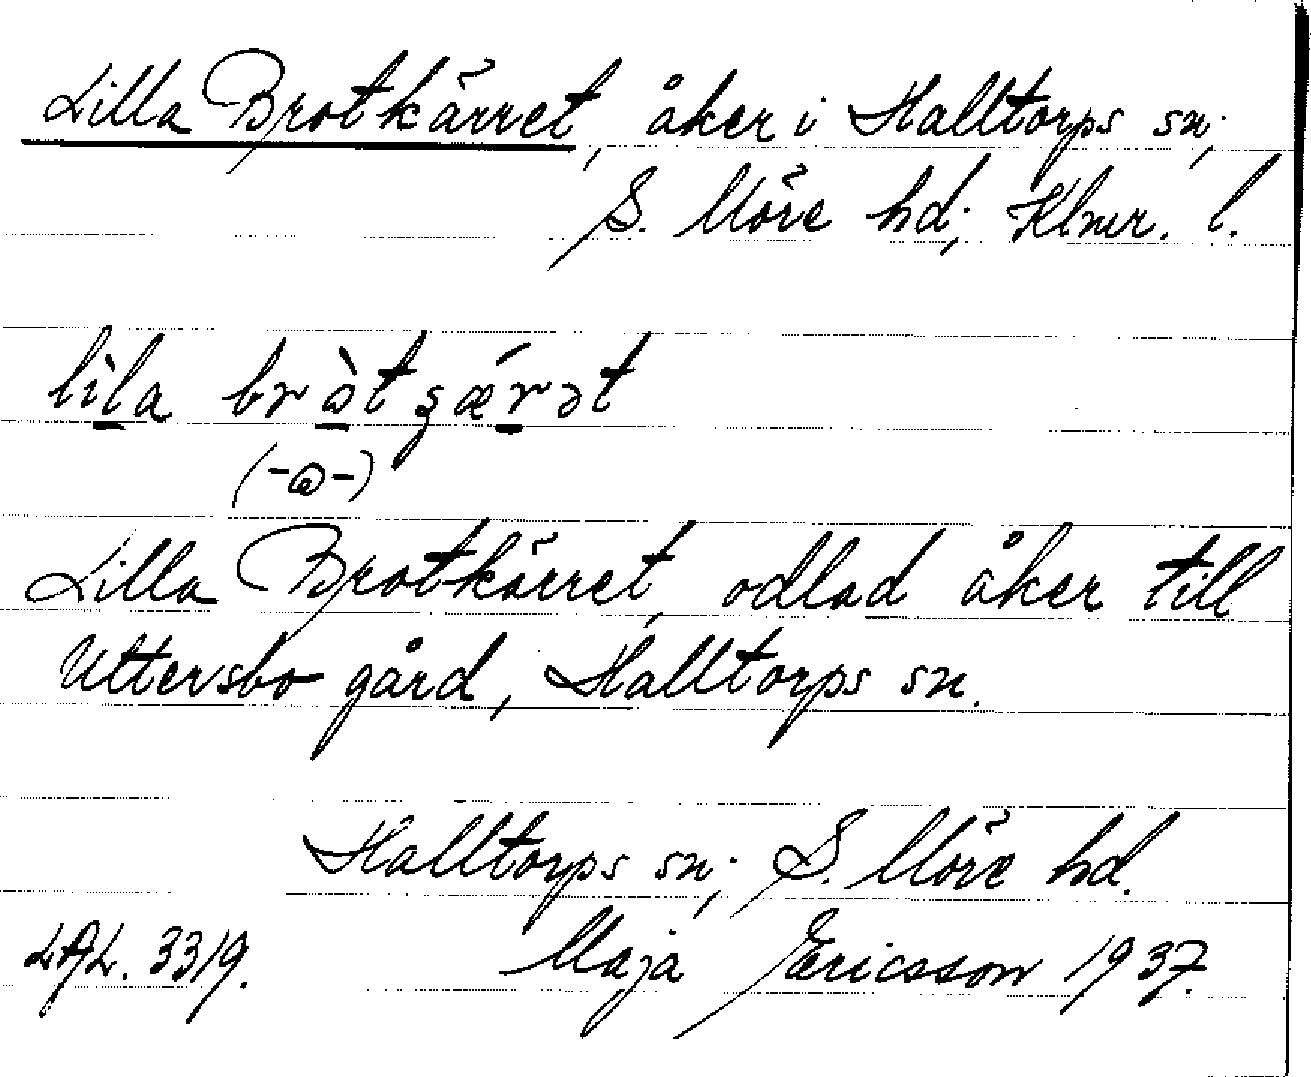 Lilla Brotkärret, åker i Halltorps sn;
S. Möre hd; Klmr. l.
lìla bròtʂǽrət
(-ɷ-)
Lilla Brotkärret, odlad åker till
Uttersbo gård, Halltorps sn.
Halltorps sn; S. Möre hd.
LAL. 3319. Maja Ericsson 1937.